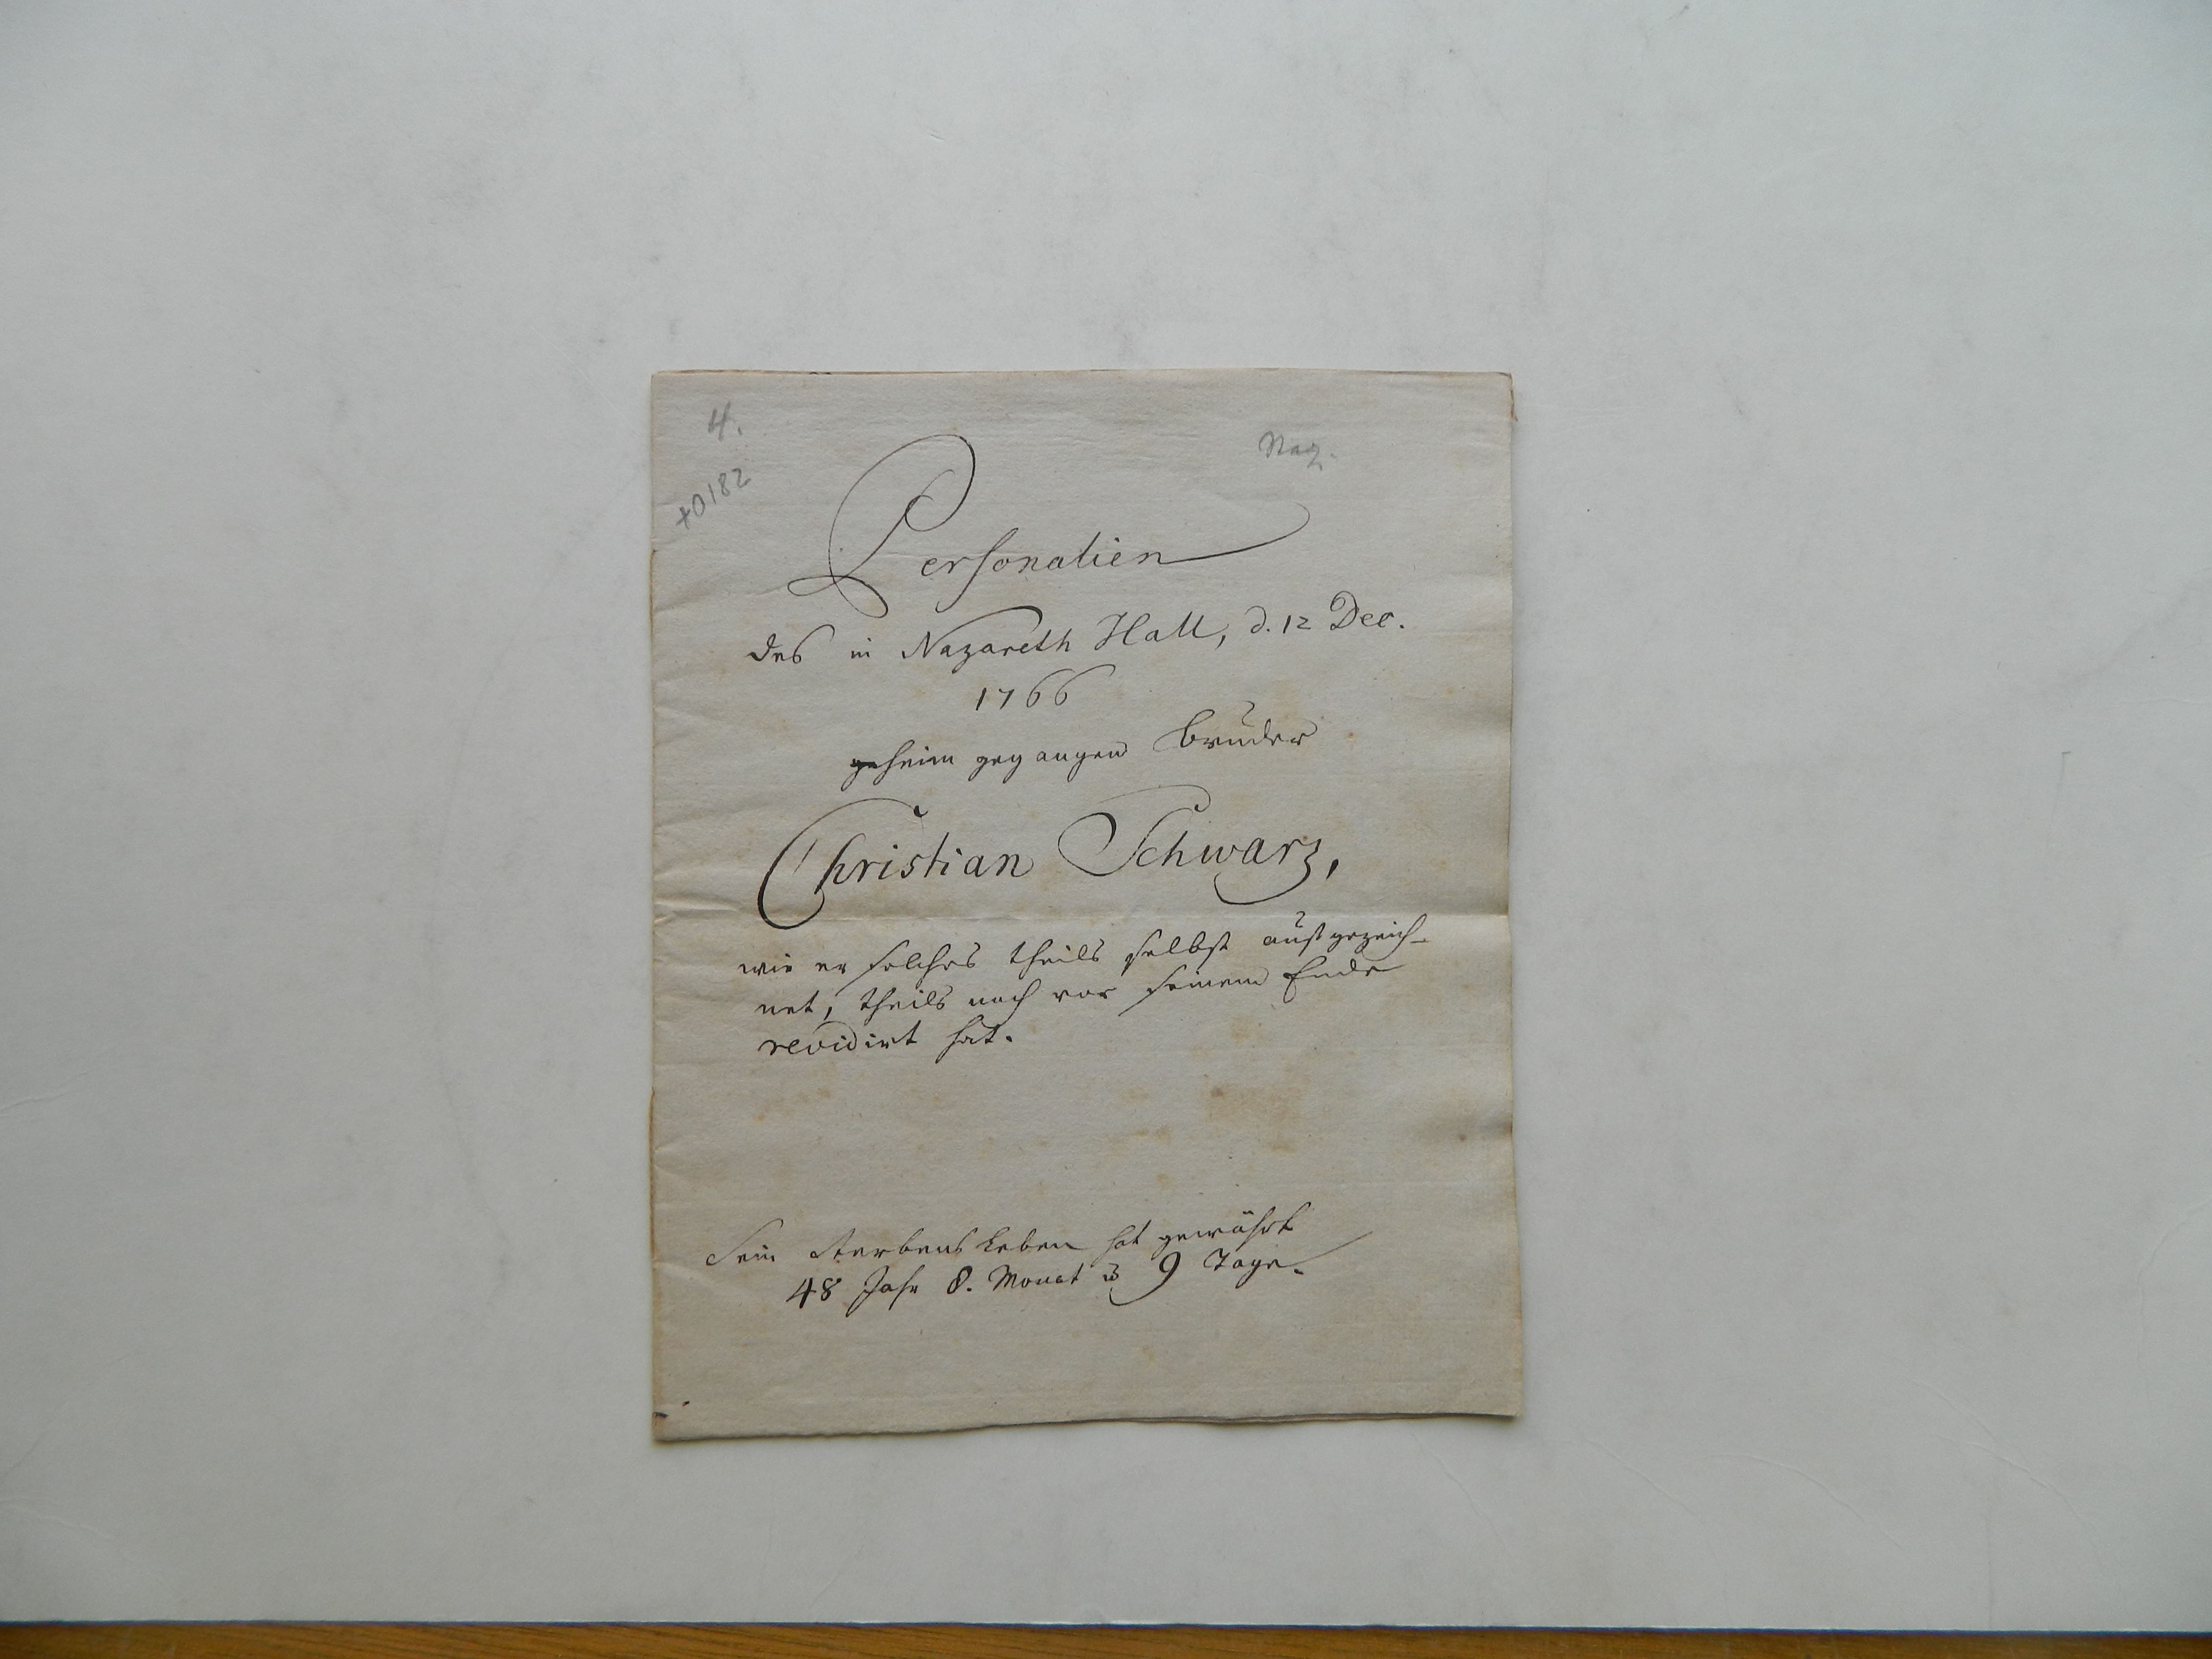 4.
Naz.
+0182
Personalien
des in Nazareth Hall, d. 12 Dec.
1766
heim gegangen Bruders
Christian Schwarz,
wie er solches theils selbst aufgezeich-
net, theils noch vor seinem Ende
revidirt hat.
Sein Sterbens Leben hat gewährt
48 Jahr 8. Monat u 9 Tage.